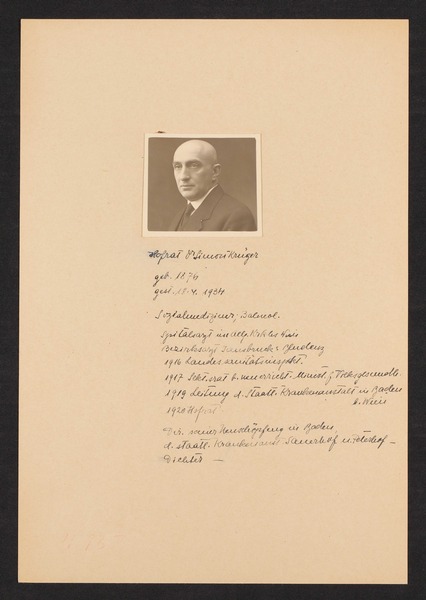 Hofrat Dr Simon Krüger
geb. 1876
gest. 18.4. 1934
Sozialmediziner, Balneol.
Spitalsarzt im allg. Wien
Bezirksarzt Innsbruck Bludenz
1916 Landessanitätsinspekt.
1917 Sekt. rat b. neuerricht. Minist. f. Volksgesundh.
1919 Leitung d. Staatl. Krankenanstalt in Baden
b. Wien
1920 Hofrat
Dir. seiner Neuschöpfung in Baden,
d. staatl. Krankenanst. Sauerhof u. Peterhof –
Dichter —